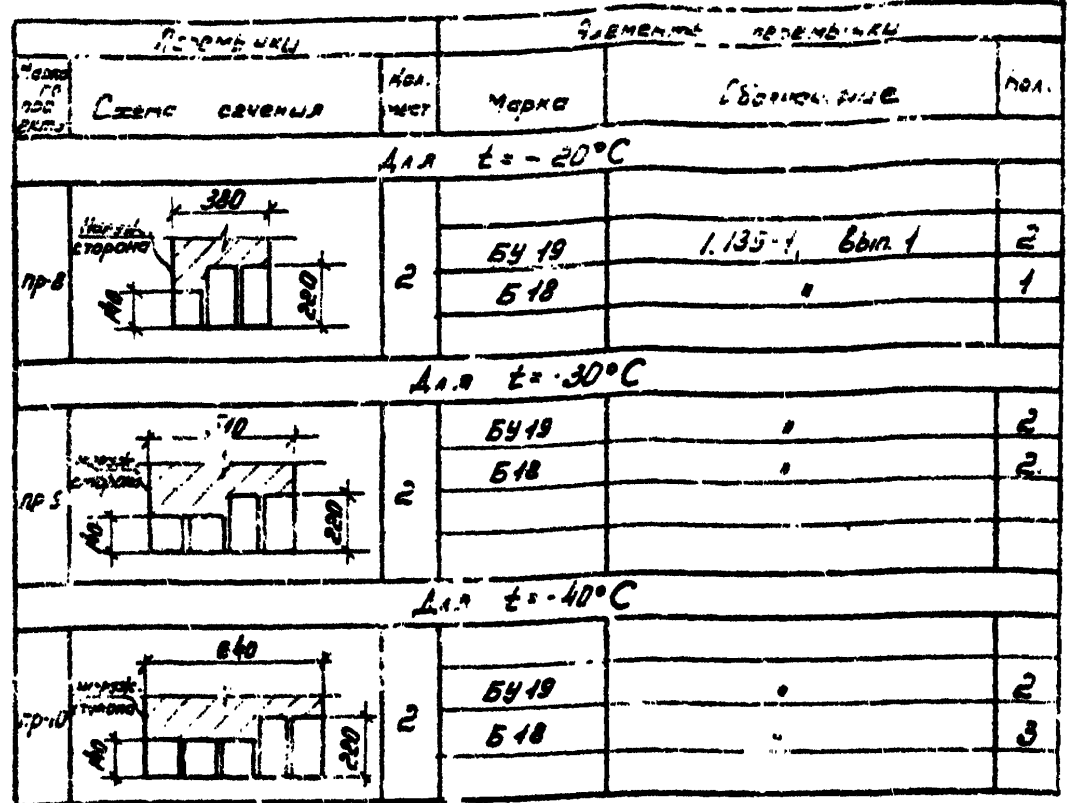 Перемычки Элементы перемычки
Марка по проекту Схема сечения Кол. мест Марка Обозначение Кол.
Для t = - 20°С
380
Наруж. сторона
пр-8 2 220
БУ 19 1.139-1, Вып. 1 2
Б 18 " 1
Для t = -30°С
510
наруж. сторона
2 220
БУ 19 " 2
Б 18 " 2
Для t = -40°С
640
наруж.
пр-10 2 220
БУ 19 " 2
Б 18 " 3